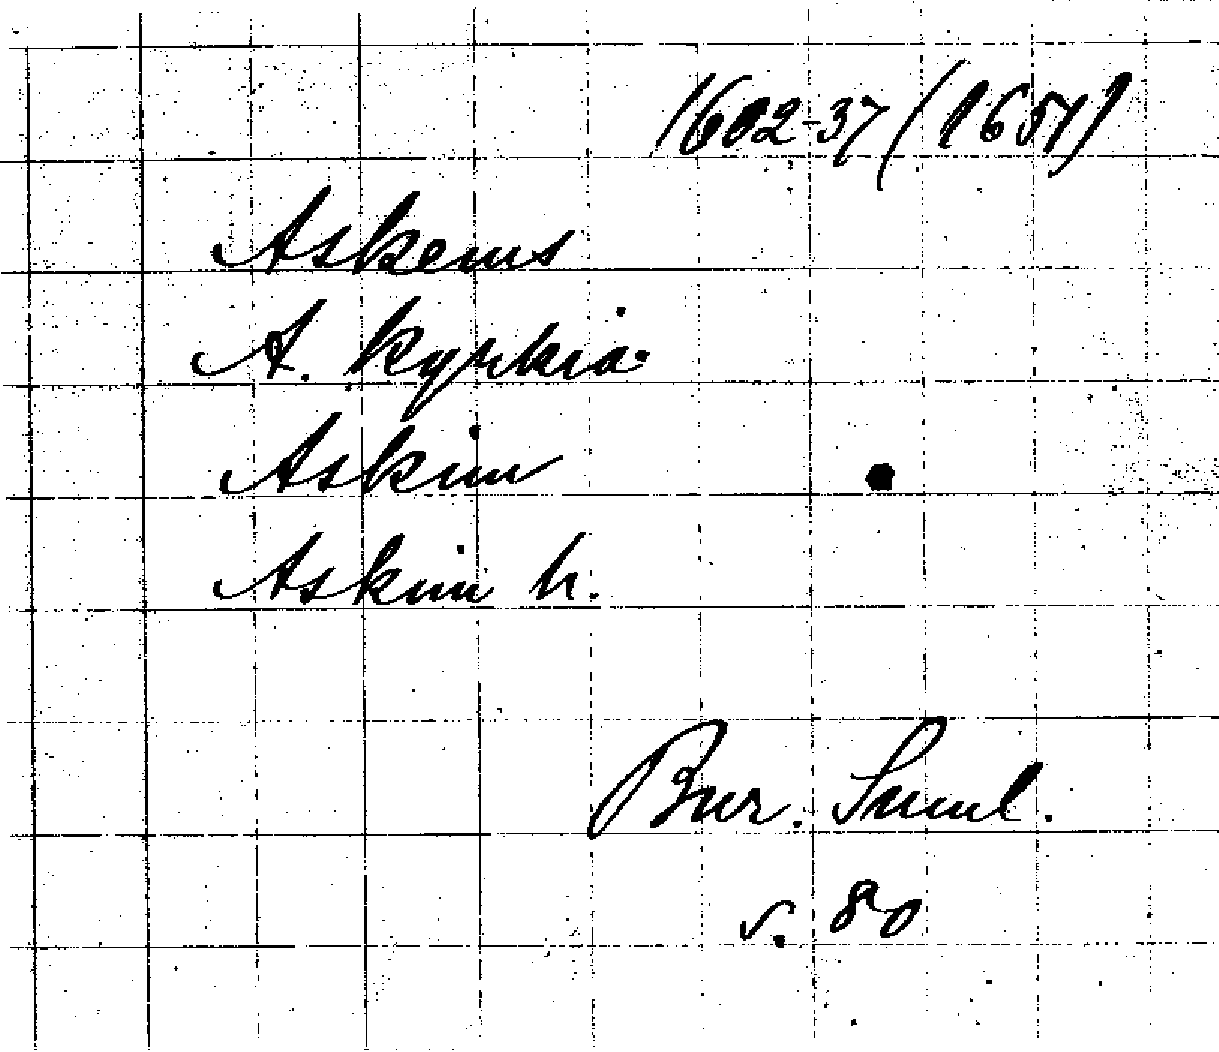 1602-37 (1657)
Askems
A. kyrkia
Askim
Askim h.
Bur. Saml.
s. 80